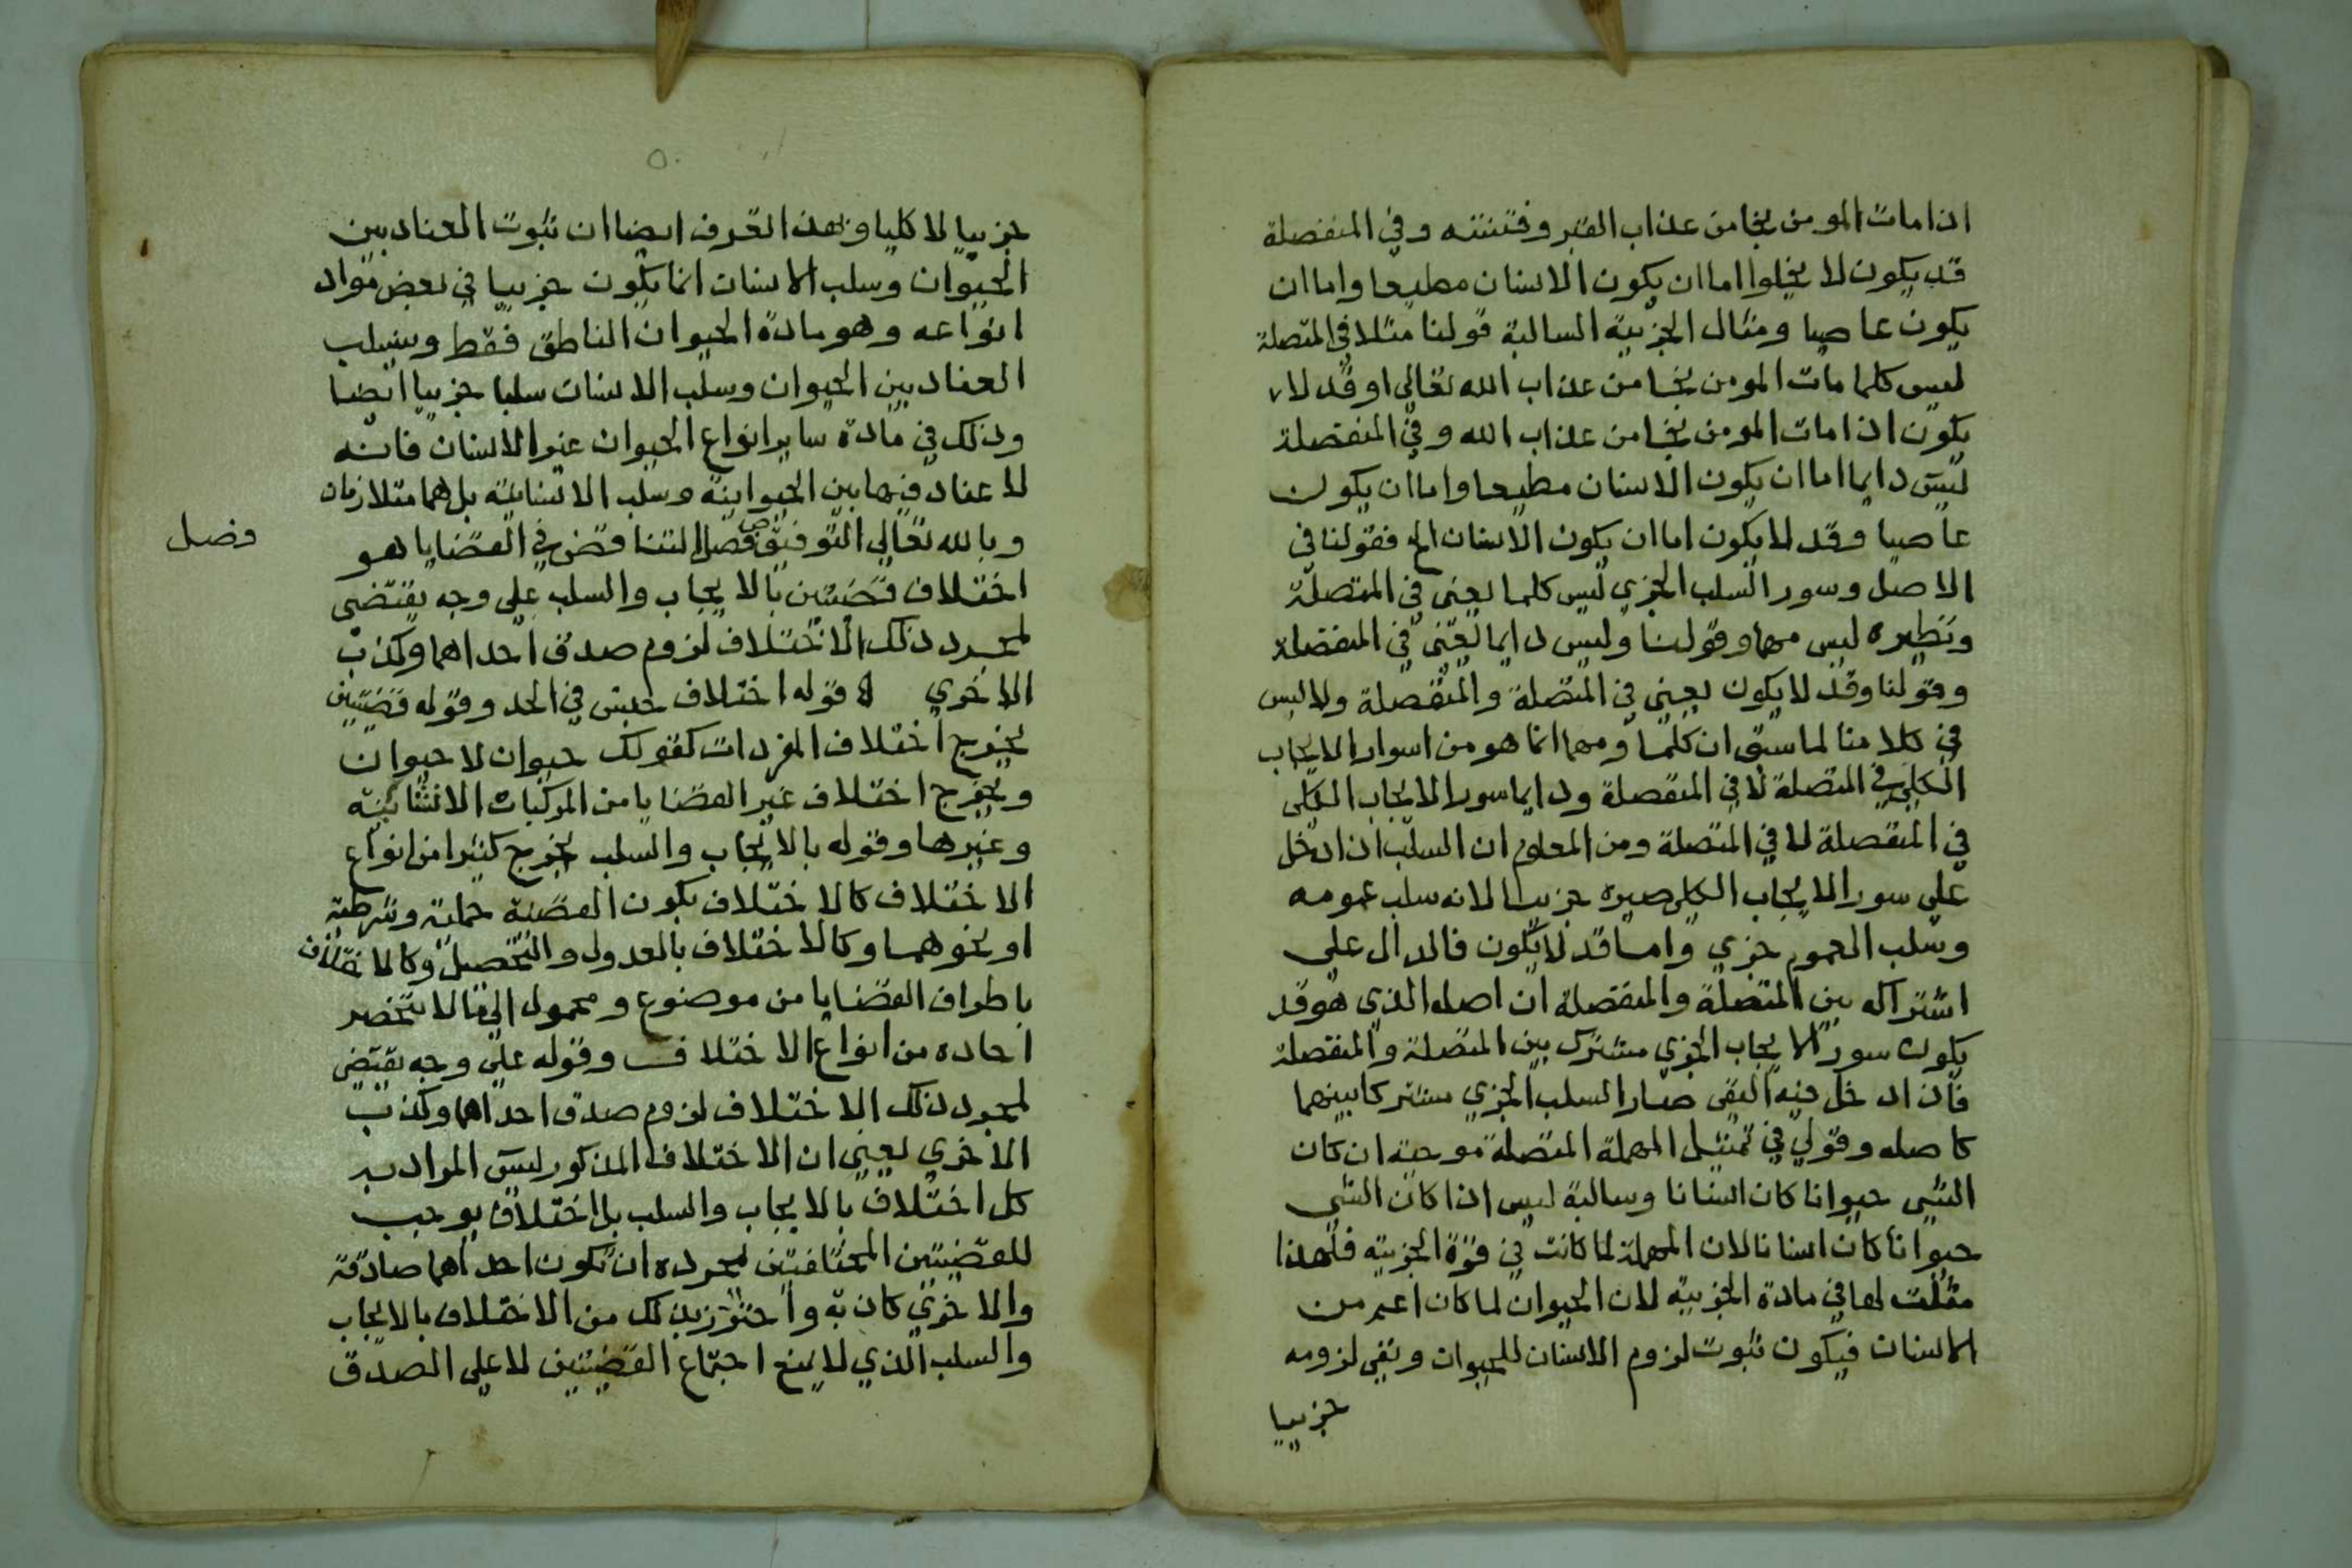 اذا مات المومن نجا من عذاب القبر وفتنته وفي المنفصلة
قد يكون لا يخلوا اما ان يكون الانسان مطيعا واما ان
يكون عاصيا ومثال الجزيية السالبة قولنا مثلا في المتصلة
ليس كلما مات المومن نجا من عذاب الله تعالي او قد لا
يكون اذا مات المومن نجا من عذاب الله وفي المنفصلة
ليس دايما اما ان يكون الانسان مطيعا واما ان يكون
عاصيا وقد لا يكون اما ان يكون الانسان الخ فقولنا في
الاصل وسور السلب الجزي ليس كلما يعني في المتصلة
ونظيره ليس مهما وقولنا وليس دايما يعني في المنفصلة
وقولنا وقد لا يكون يعني في المتصلة والمنفصلة ولا لبس
في كلامنا لما سبق ان كلما ومهما انما هو من اسوار الايجاب
الكلي في المتصلة لا في المنفصلة ودايما سور الايجاب الكلي
في المنفصلة لا في المتصلة ومن المعلوم ان السلب اذا دخل
علي سور الايجاب الكلي صيره جزييا لانه سلب عمومه
وسلب العموم جزي واما قد لا يكون فالدال علي
اشتراكه بين المتصلة والمنفصلة ان اصله الذي هو قد
يكون سور الايجاب الجزي مشترك بين المتصلة والمنفصلة
فان ادخل فيه النفي صار السلب الجزي مشتركا بينهما
كاصله وقولي في تمثيل المهملة المتصلة موجبة ان كان
الشي حيوانا كان انسانا وسالبة ليس اذا كان الشي
حيوانا كان انسانا لان المهملة لما كانت في قوة الجزيية فلهذا
مثلت لها في مادة الجزيية لان الحيوان لما كان اعم من
الانسان فيكون ثبوت لزوم الانسان للحيوان ونفي لزومه
جزييا
٥٠
جزييا لا كليا وبهذا تعرف ايضا ان ثبوت العناد بين
الحيوان وسلب الانسان انما يكون جزييا في بعض مواد
انواعه وهو مادة الحيوان الناطق فقط وسلب
العناد بين الحيوان وسلب الانسان سلبا جزييا ايضا
وذلك في مادة ساير انواع الحيوان غير الانسان فانه
لا عناد فيها بين الحيوانية وسلب الانسانية بل هما متلازمان
وبالله تعالي التوفيق ص فصل التناقض في القضايا هو
فصل
اختلاف قضيتين بالايجاب والسلب علي وجه يقتضي
لمجرد ذلك الاختلاف لزوم صدق احداهما وكذب
الاخري قوله اختلاف جنس في الحد وقوله قضيتين
يخرج اختلاف المفردات كقولك حيوان لا حيوان
ويخرج اختلاف غير القضايا من المركبات الانشائية
وغيرها وقوله بالايجاب والسلب يخرج كثيرا من انواع
الاختلاف كالاختلاف بكون القضية حملية وشرطية
او نحوهما وكالاختلاف بالعدول والتحصيل وكالاختلاف
باطراف القضايا من موضوع ومحمول الي ما لا تنحصر
احاده من انواع الاختلاف وقوله علي وجه يقتضي
لمجرد ذلك الاختلاف لزوم صدق احداهما وكذب
الاخري يعني ان الاختلاف المذكور ليس المراد به
كل اختلاف بالايجاب والسلب بل اختلاف يوجب
للقضيتين المختلفتين لمجرده ان تكون احداهما صادقة
والاخري كاذبة واحترز بذلك من الاختلاف بالايجاب
والسلب الذي لا يمنع اجتماع القضيتين لا علي الصدق